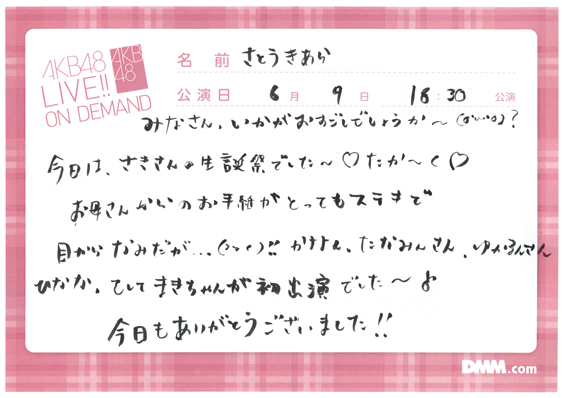 AKB48
LIVE!!
ON DEMAND
AKB
48
名 前 さとうきあら
公演日 6月 9日 18:30 公演
みなさん、いかがおすごしでしょうか〜 ?
今日は、さきさんの生誕祭でした〜♡たか〜く♡
お母さんからのお手紙がとってもステキで
目からなみだが...(> <)!! かおたん、たなみんさん、ゆかるんさん
ひなな、そしてまきちゃんが初出演でした〜♪
今日もありがとうございました!!
DMM.com